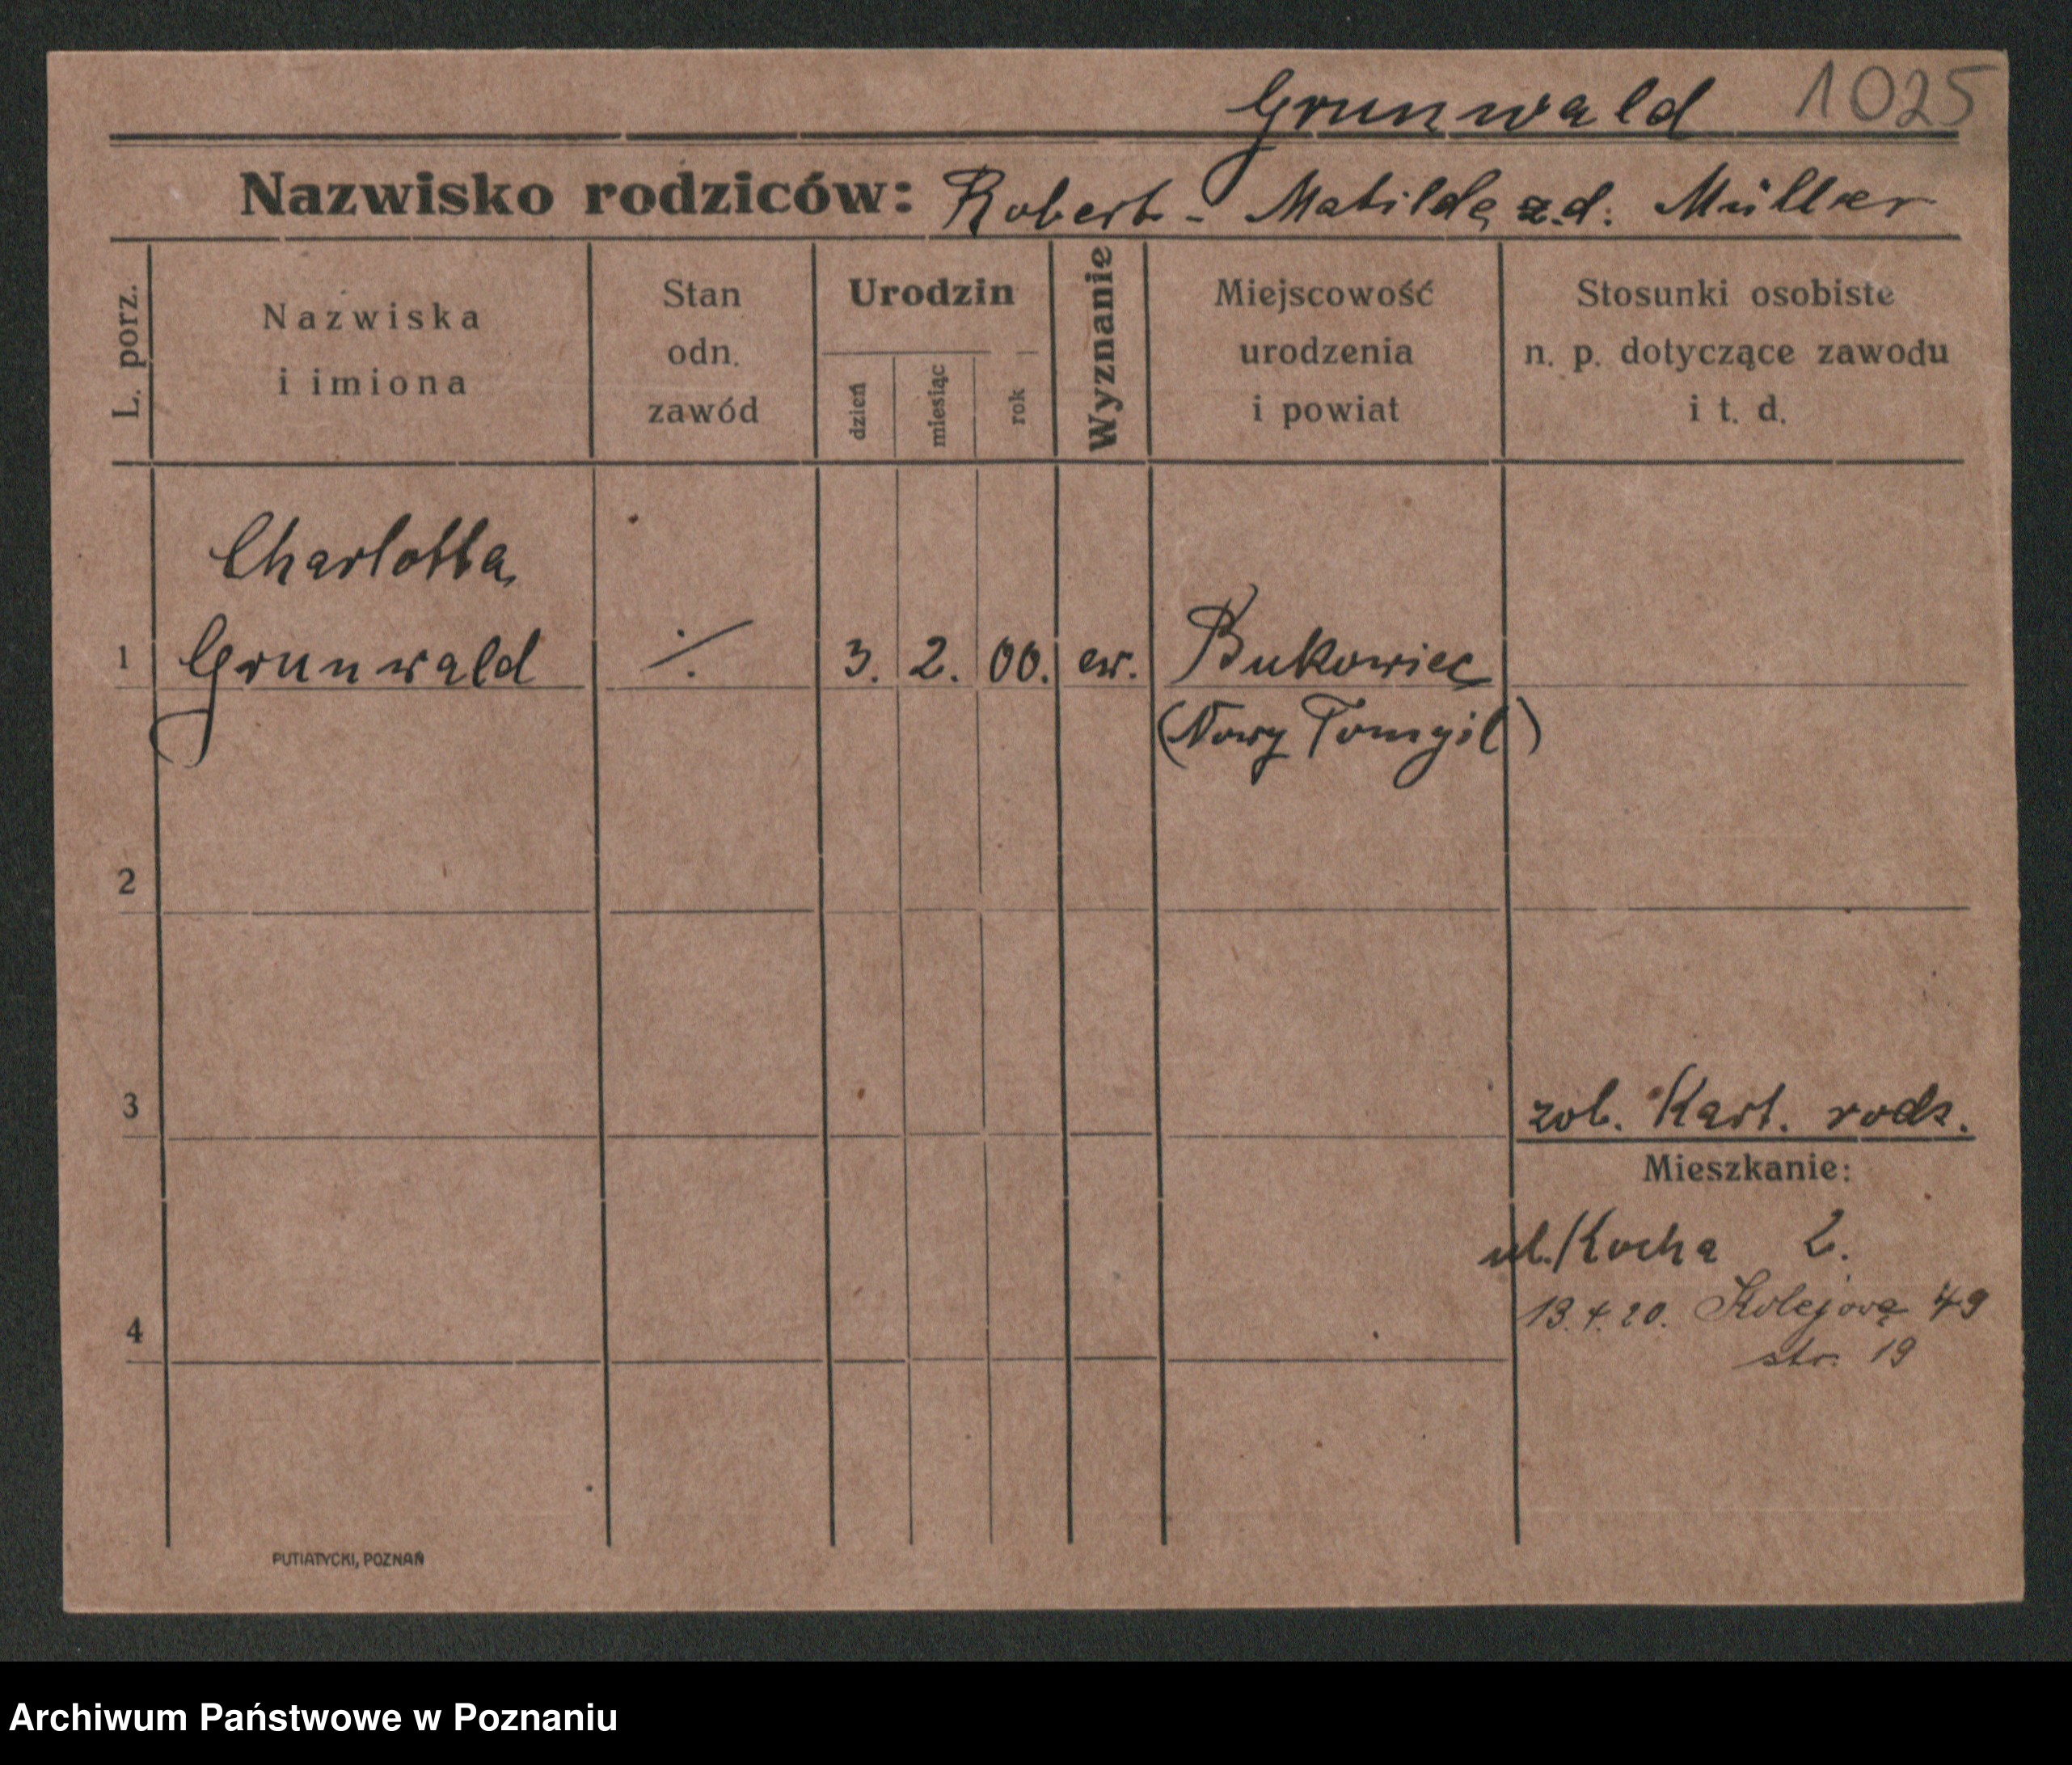 Grunwald 1025
Nazwisko rodziców: Robert - Matilda z.d. Müller
L. porz.
Nazwiska
i imiona
Stan
odn.
zawód
Urodzin
dzień
miesiąc
rok
Wyznanie
Miejscowość
urodzenia
i powiat
Stosunki osobiste
n. p. dotyczące zawodu
i t. d.
Charlotta
1 Grunwald ./. 3. 2. 00. ew. Bukowiec
(Nowy Tomyśl)
2
3 zob. Kart. rodz.
Mieszkanie:
ul. Kocha 2.
13.4.20. Kolejowa 49
4 str. 19
PUTIATYCKI, POZNAŃ
Archiwum Państwowe w Poznaniu